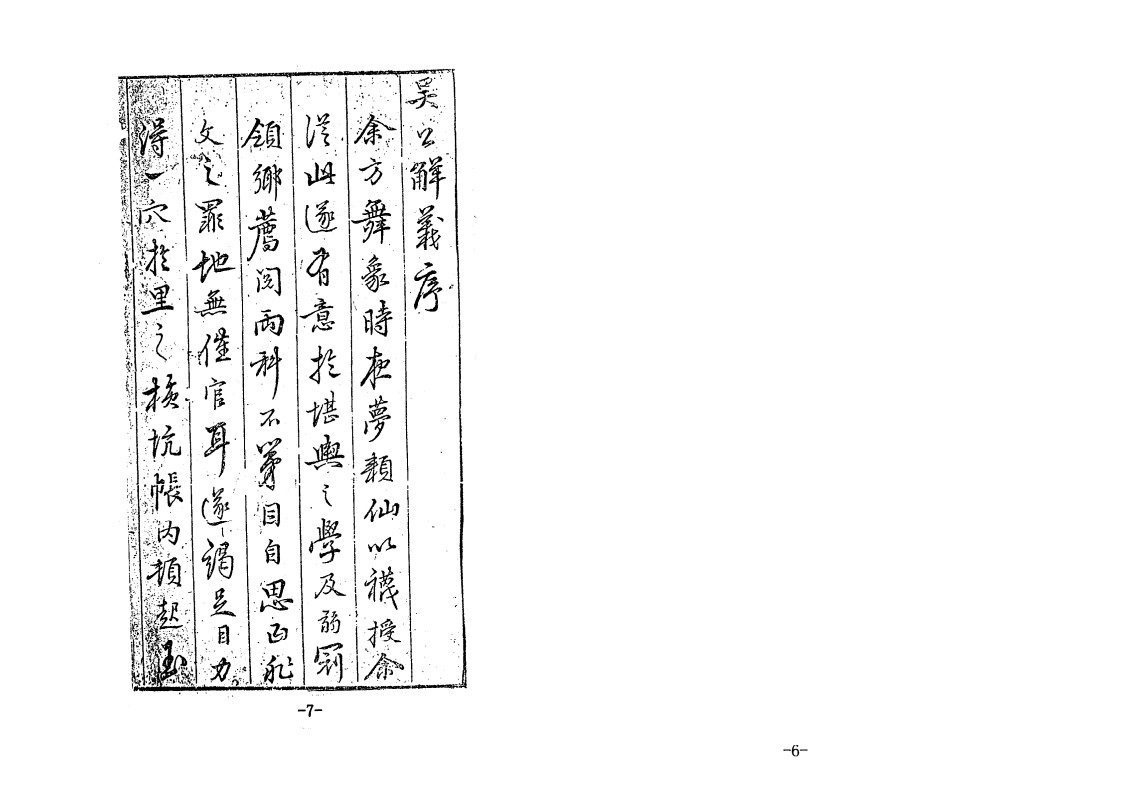 吴公解義序
余方舞象時夜夢類仙以襪授余
從此遂有意於堪輿之學及弱冠
領鄉薦閱兩科不第因自思曰非
文之罪地無催官耳遂竭足目力
得一穴於里之橫坑帳內頓起玉
-7-
-6-